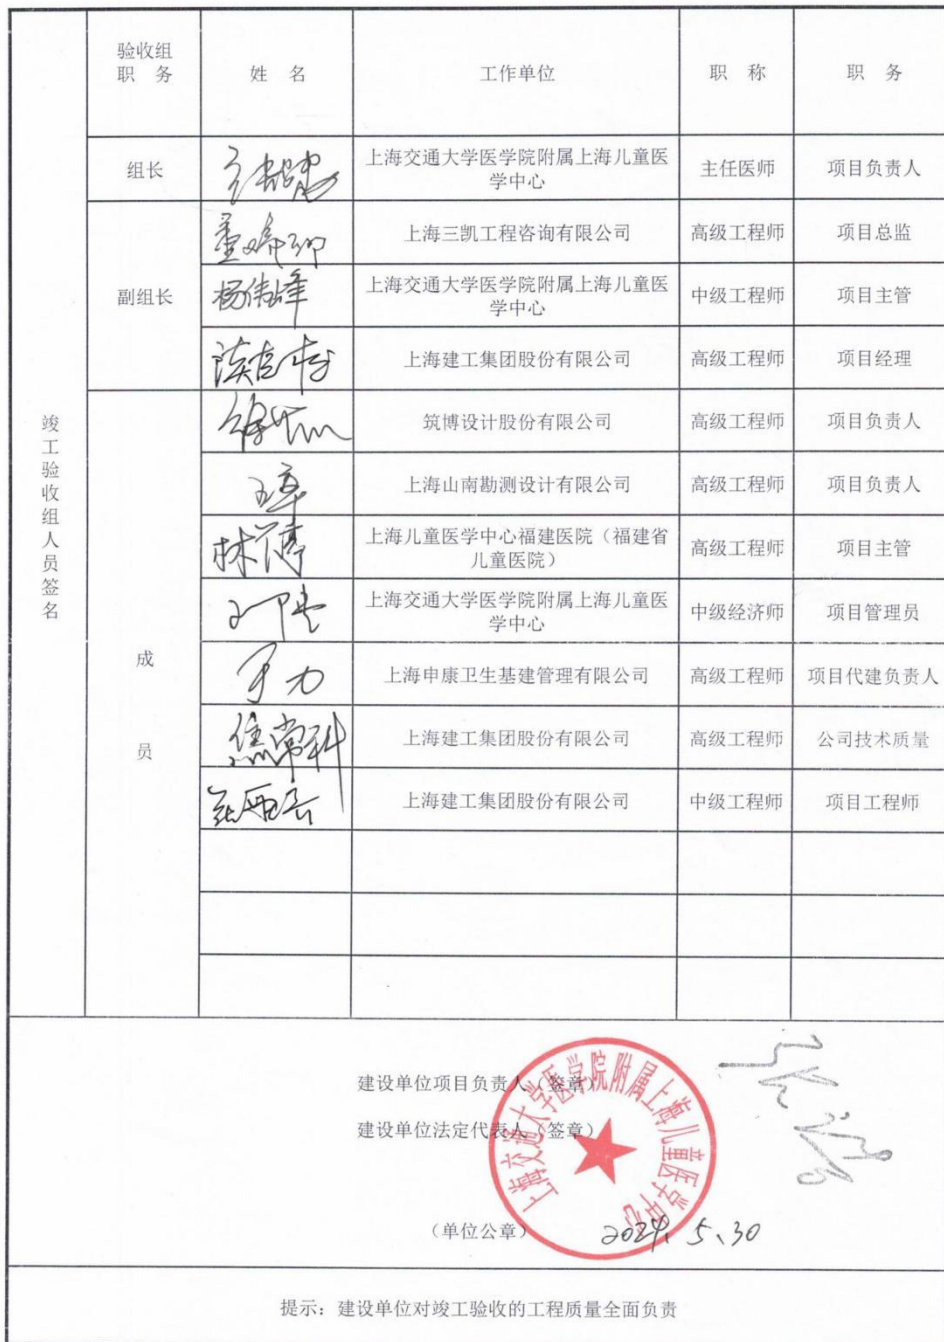 验收组
职 务
姓 名
工作单位
职 称
职 务
竣工验收组人员签名
组长
上海交通大学医学院附属上海儿童医
学中心
主任医师
项目负责人
副组长
上海三凯工程咨询有限公司
高级工程师
项目总监
杨伟峰
上海交通大学医学院附属上海儿童医
学中心
中级工程师
项目主管
上海建工集团股份有限公司
高级工程师
项目经理
成
员
筑博设计股份有限公司
高级工程师
项目负责人
上海山南勘测设计有限公司
高级工程师
项目负责人
上海儿童医学中心福建医院（福建省
儿童医院）
高级工程师
项目主管
上海交通大学医学院附属上海儿童医
学中心
中级经济师
项目管理员
上海申康卫生基建管理有限公司
高级工程师
项目代建负责人
焦常科
上海建工集团股份有限公司
高级工程师
公司技术质量
上海建工集团股份有限公司
中级工程师
项目工程师
建设单位项目负责人（签章）
建设单位法定代表人（签章）
上海交通大学医学院附属上海儿童医学中心
（单位公章）
2024.5.30
提示：建设单位对竣工验收的工程质量全面负责